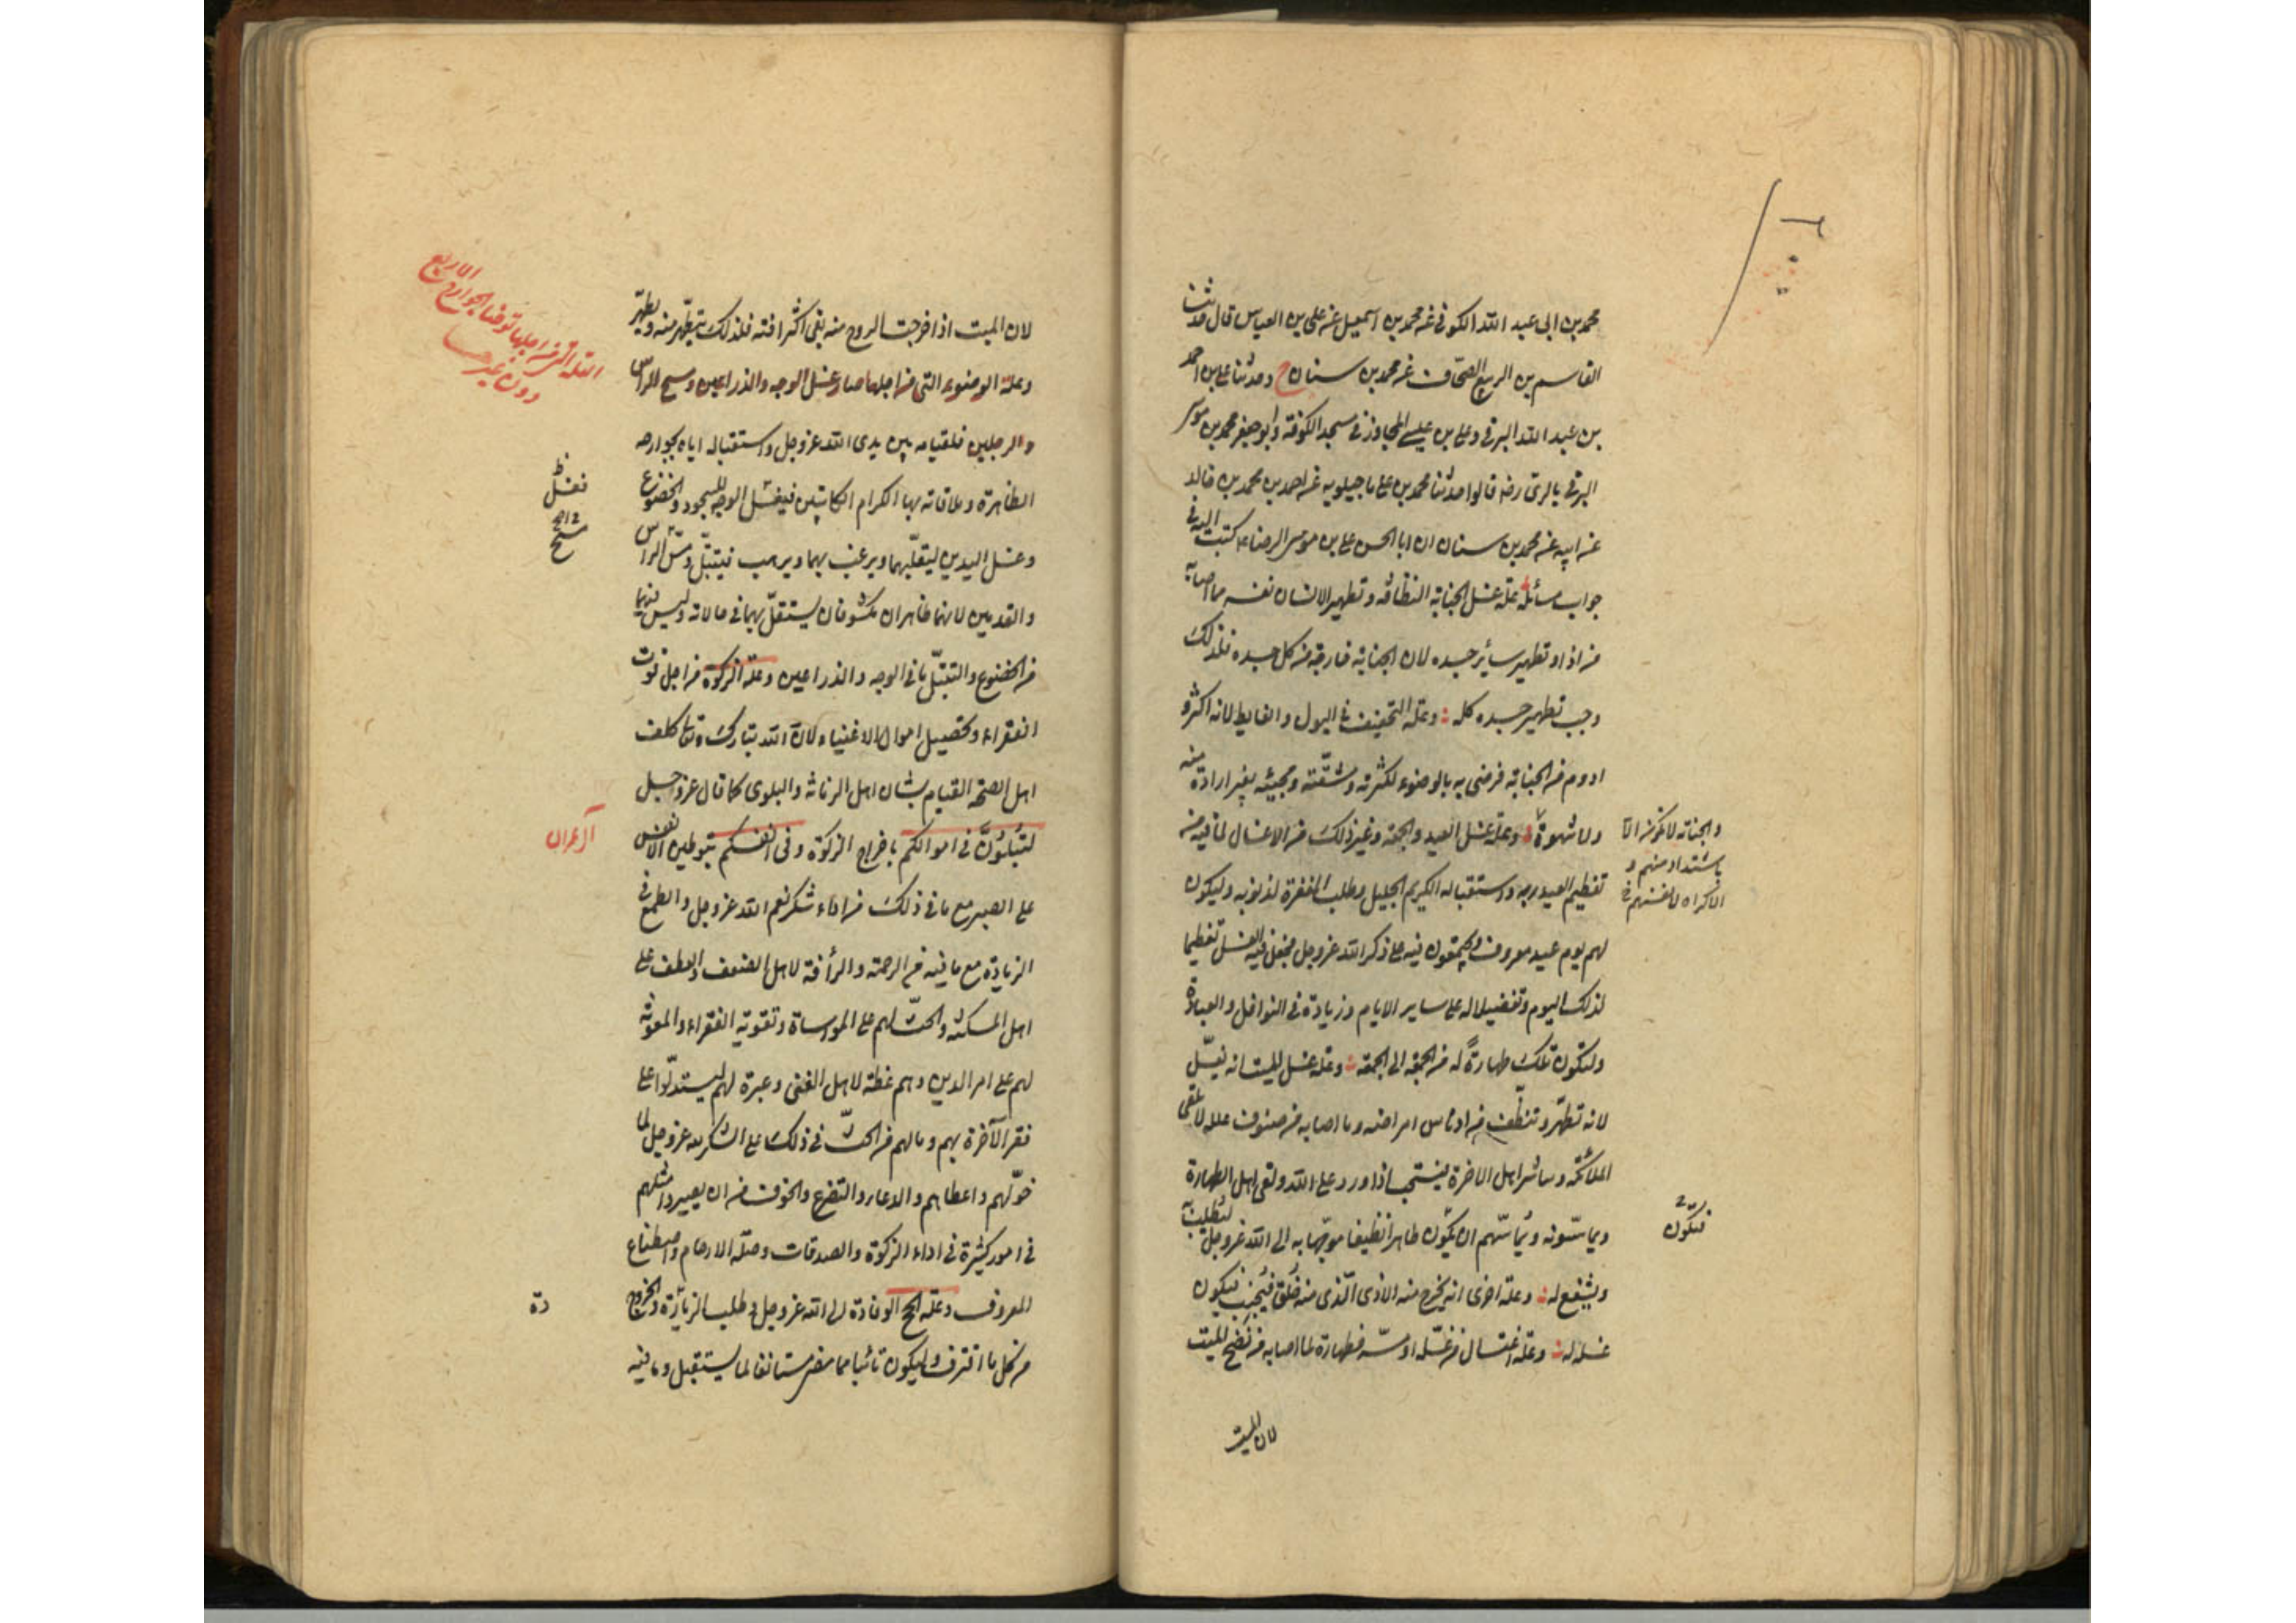 محمد بن ابی عبد الله الکوفی عن محمد بن اسمعیل عن علی بن العباس قال حدثنا
القاسم بن الربیع الصحّاف عن محمد بن سنان ح وحدثنا علی بن احمد
بن عبد الله البرقی وعلی بن عیسی المجاور فی مسجد الکوفة وابو جعفر محمد بن موسی
البرقی بالری رضه قالوا حدثنا محمد بن علی ماجیلویه عن احمد بن محمد بن خالد
عن ابیه عن محمد بن سنان ان ابا الحسن علی بن موسی الرضاء کتب الیه فی
جواب مسائله علة غسل الجنابة النظافة وتطهیر الانسان نفسه مما اصابه
من اذاه وتطهیر سائر جسده لان الجنابة خارجة من کل جسده فلذلک
وجب تطهیر جسده کله وعلة التخفیف فی البول والغایط لانه اکثر و
ادوم من الجنابة فرضی به بالوضوء لکثرته ومشقّته ومجیئه بغیر ارادة منه
ولا شهوة وعلة غسل العید والجمعة وغیر ذلک من الاغسال لما فیه من
والجنابة لا تکون الا
باستلذاذ منهم و
الاکراه لانفسهم
تعظیم العبد ربه واستقباله الکریم الجلیل وطلب المغفرة لذنوبه ولیکون
لهم یوم عید معروف یجتمعون فیه علی ذکر الله عز وجل فجعل فیه الغسل تعظیما
لذلک الیوم وتفضیلا له علی سایر الایام وزیادة فی النوافل والعبادة
ولتکون تلک طهارةً له من الجمعة الی الجمعة وعلة غسل المیت انه یغسّل
لانه تطهّر وتنظّف من ادناس امراضه وما اصابه من صنوف علله لانه یلقی
الملائکة وسائر اهل الاخرة فیستحب اذا ورد علی الله ولقی اهل الطهارة
ویماسّونه ویُماسّهم ان یکون طاهرا نظیفا موجّها به الی الله عز وجل لیطلب به
ویشفع له وعلة اخری انه یخرج منه الاذی الّذی منه خُلق فیُجنب فیکون
فتکون
غسله له وعلة اغتسال من غسّله او مسّه فطهارة لما اصابه من نَضْح المیت
لان المیت
لان المیت اذا خرجت الروح منه بقی اکثر افته فلذلک یتطهّر منه ویطهّر
وعلة الوضوء التی من اجلها صار غسل الوجه والذراعین ومسح الراس
العلة التی من اجلها توضا الجوارح الاربع
دون غیرها
والرجلین فلقیامه بین یدی الله عز وجل واستقباله ایاه بجوارحه
الظاهرة وملاقاته بها الکرام الکاتبین فیغسل الوجه للسجود والخضوع
فغسل
وغسل الیدین لیقلّبهما ویرغب بهما ویرهب ویتبتّل ومسح الراس
مسح
والقدمین لانهما ظاهران مکشوفان یستقلّ بهما فی حالاته ولیس فیهما
من الخضوع والتبتّل ما فی الوجه والذراعین وعلة الزکوة من اجل قوت
الفقراء وتحصیل اموال الاغنیاء لان الله تبارک وتعالی کلف
اهل الصحة القیام بشان اهل الزمانة والبلوی کما قال عز وجل
لتُبْلَوُنَّ فی اموالکم باخراج الزکوة وفی انفسکم بتوطین الانفس
آل عمران
علی الصبر مع ما فی ذلک من اداء شکر نعم الله عز وجل والطمع فی
الزیادة مع ما فیه من الرحمة والرأفة لاهل الضعف والعطف علی
اهل المسکنة والحثّ لهم علی المواساة وتقویة الفقراء والمعونة
لهم علی امر الدین وهم عظة لاهل الغنی وعبرة لهم لیستدلّوا علی
فقر الآخرة بهم وما لهم من الحثّ فی ذلک علی الشکر لله عز وجل لما
خوّلهم واعطاهم والدعاء والتضرع والخوف من ان یصیروا مثلهم
فی امور کثیرة فی اداء الزکوة والصدقات وصلة الارحام واصطناع
المعروف وعلة الحج الوفادة الی الله عز وجل وطلب الزیادة والخروج
دة
من کل ما اقترف ولیکون تائبا مما مضی مستانفا لما یستقبل وما فیه